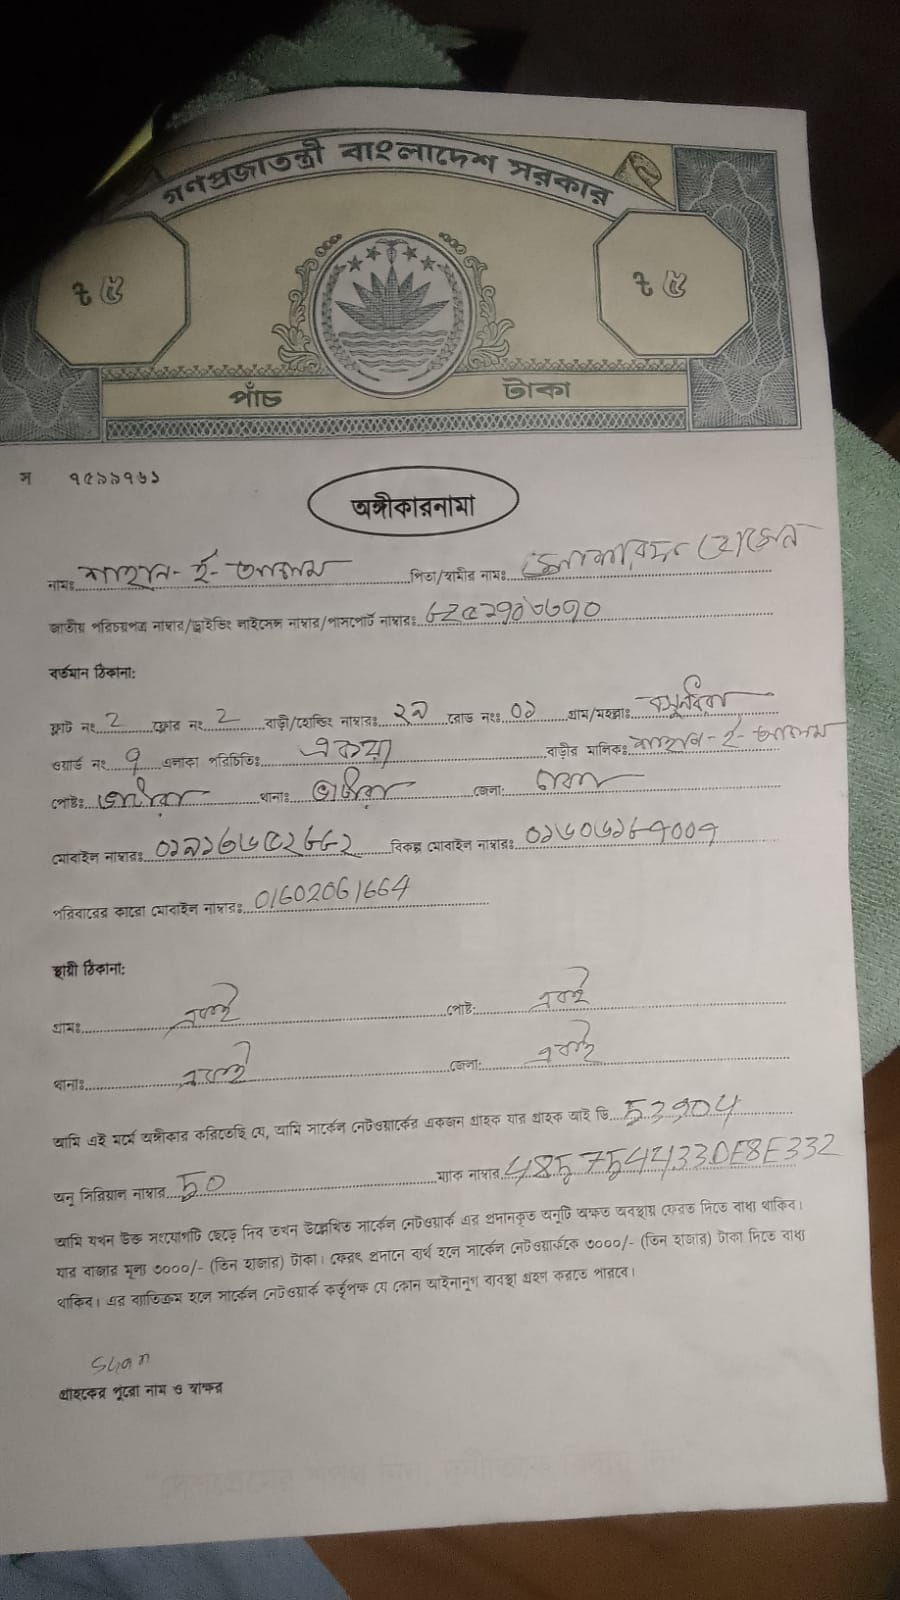 গণপ্রজাতন্ত্রী বাংলাদেশ সরকার
৳ ৫ ৳ ৫
পাঁচ টাকা
স ৭৫৯৯৭৬১
অঙ্গীকারনামা
নামঃ শাহান-ই-আলম পিতা/স্বামীর নাম: হোসেন
জাতীয় পরিচয়পত্র নাম্বার/ড্রাইভিং লাইসেন্স নাম্বার/পাসপোর্ট নাম্বার:
বর্তমান ঠিকানা:
ফ্লাট নং 2 ফ্লোর নং 2 বাড়ী/হোল্ডিং নাম্বারঃ ২৯ রোড নংঃ ০১ গ্রাম/মহল্লাঃ বসুন্ধরা
ওয়ার্ড নং এলাকা পরিচিতি: বাড়ীর মালিক: শাহান-ই-আলম
পোষ্টঃ ভাটারা থানাঃ ভাটারা জেলা: ঢাকা
মোবাইল নাম্বারঃ বিকল্প মোবাইল নাম্বারঃ
পরিবারের কারো মোবাইল নাম্বারঃ 01602061664
স্থায়ী ঠিকানা:
গ্রামঃ একই পোষ্ট: একই
থানাঃ একই জেলা: একই
আমি এই মর্মে অঙ্গীকার করিতেছি যে, আমি সার্কেল নেটওয়ার্কের একজন গ্রাহক যার গ্রাহক আই ডি 53904
অনু সিরিয়াল নাম্বার 50 ম্যাক নাম্বার 485754433DE8E332
আমি যখন উক্ত সংযোগটি ছেড়ে দিব তখন উল্লেখিত সার্কেল নেটওয়ার্ক এর প্রদানকৃত অনুটি অক্ষত অবস্থায় ফেরত দিতে বাধ্য থাকিব।
যার বাজার মূল্য ৩০০০/- (তিন হাজার) টাকা। ফেরৎ প্রদানে ব্যর্থ হলে সার্কেল নেটওয়ার্ককে ৩০০০/- (তিন হাজার) টাকা দিতে বাধ্য
থাকিব। এর ব্যতিক্রম হলে সার্কেল নেটওয়ার্ক কর্তৃপক্ষ যে কোন আইনানুগ ব্যবস্থা গ্রহণ করতে পারবে।
গ্রাহকের পুরো নাম ও স্বাক্ষর